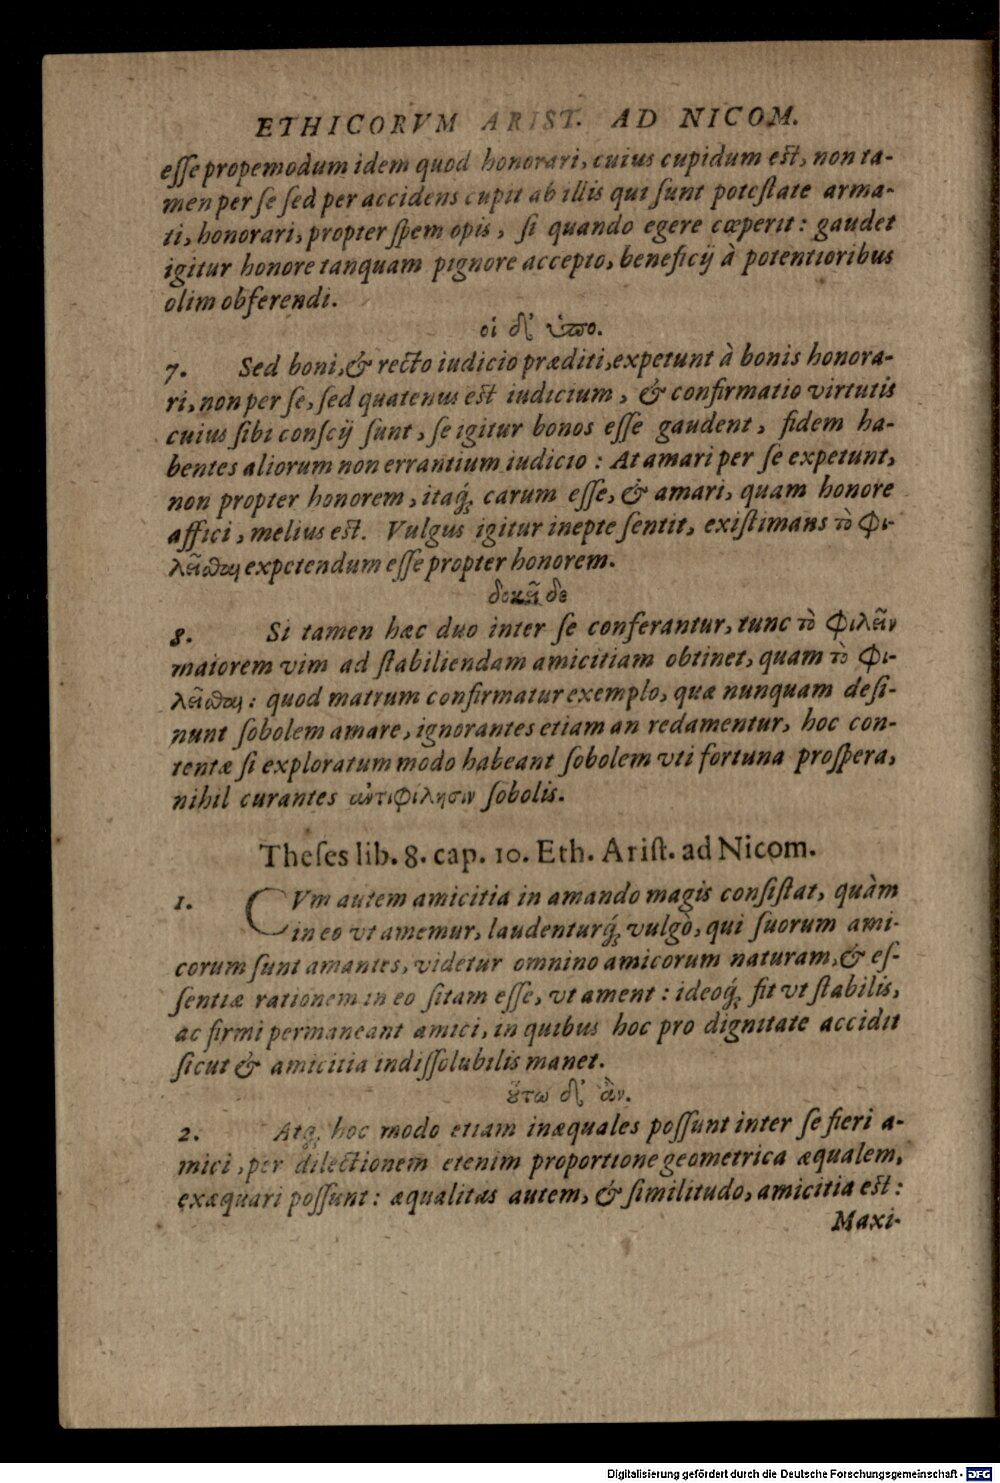 ETHICORVM ARIST. AD NICOM.
eſſe propemodum idem quod honorari, cuius cupidum eſt, non ta-
men per ſe ſed per accidens cupit ab illis qui ſunt poteſtate arma-
ti, honorari, propter ſpem opis, ſi quando egere cœperit: gaudet
igitur honore tanquam pignore accepto, beneficij à potentioribus
olim obferendi.
οἱ δ' ὑπο.
7. Sed boni, & recto iudicio præditi, expetunt à bonis honora-
ri, non per ſe, ſed quatenus eſt iudicium, & confirmatio virtutis
cuius ſibi conſcij ſunt, ſe igitur bonos eſſe gaudent, fidem ha-
bentes aliorum non errantium iudicio: At amari per ſe expetunt,
non propter honorem, itaq́; carum eſſe, & amari, quam honore
affici, melius eſt. Vulgus igitur inepte ſentit, exiſtimans τὸ φι-
λεῖσθαι expetendum eſſe propter honorem.
δοκεῖ δε
8. Si tamen hæc duo inter ſe conferantur, tunc τὸ φιλεῖν
maiorem vim ad ſtabiliendam amicitiam obtinet, quam τὸ φι-
λεῖσθαι: quod matrum confirmatur exemplo, quæ nunquam deſi-
nunt ſobolem amare, ignorantes etiam an redamentur, hoc con-
tentæ ſi exploratum modo habeant ſobolem vti fortuna proſpera,
nihil curantes ἀντιφίλησιν ſobolis.
Theſes lib. 8. cap. 10. Eth. Ariſt. ad Nicom.
1. CVm autem amicitia in amando magis conſiſtat, quàm
in eo vt amemur, laudenturq́; vulgò, qui ſuorum ami-
corum ſunt amantes, videtur omnino amicorum naturam, & eſ-
ſentiæ rationem in eo ſitam eſſe, vt ament: ideoq́; fit vt ſtabilis,
ac firmi permaneant amici, in quibus hoc pro dignitate accidit
ſicut & amicitia indiſſolubilis manet.
ὅτω δ' ἂν.
2. Atq; hoc modo etiam inæquales poſſunt inter ſe fieri a-
mici, per dilectionem etenim proportione geometrica æqualem,
exæquari poſſunt: æqualitas autem, & ſimilitudo, amicitia eſt:
Maxi-
Digitalisierung gefördert durch die Deutsche Forschungsgemeinschaft - DFG